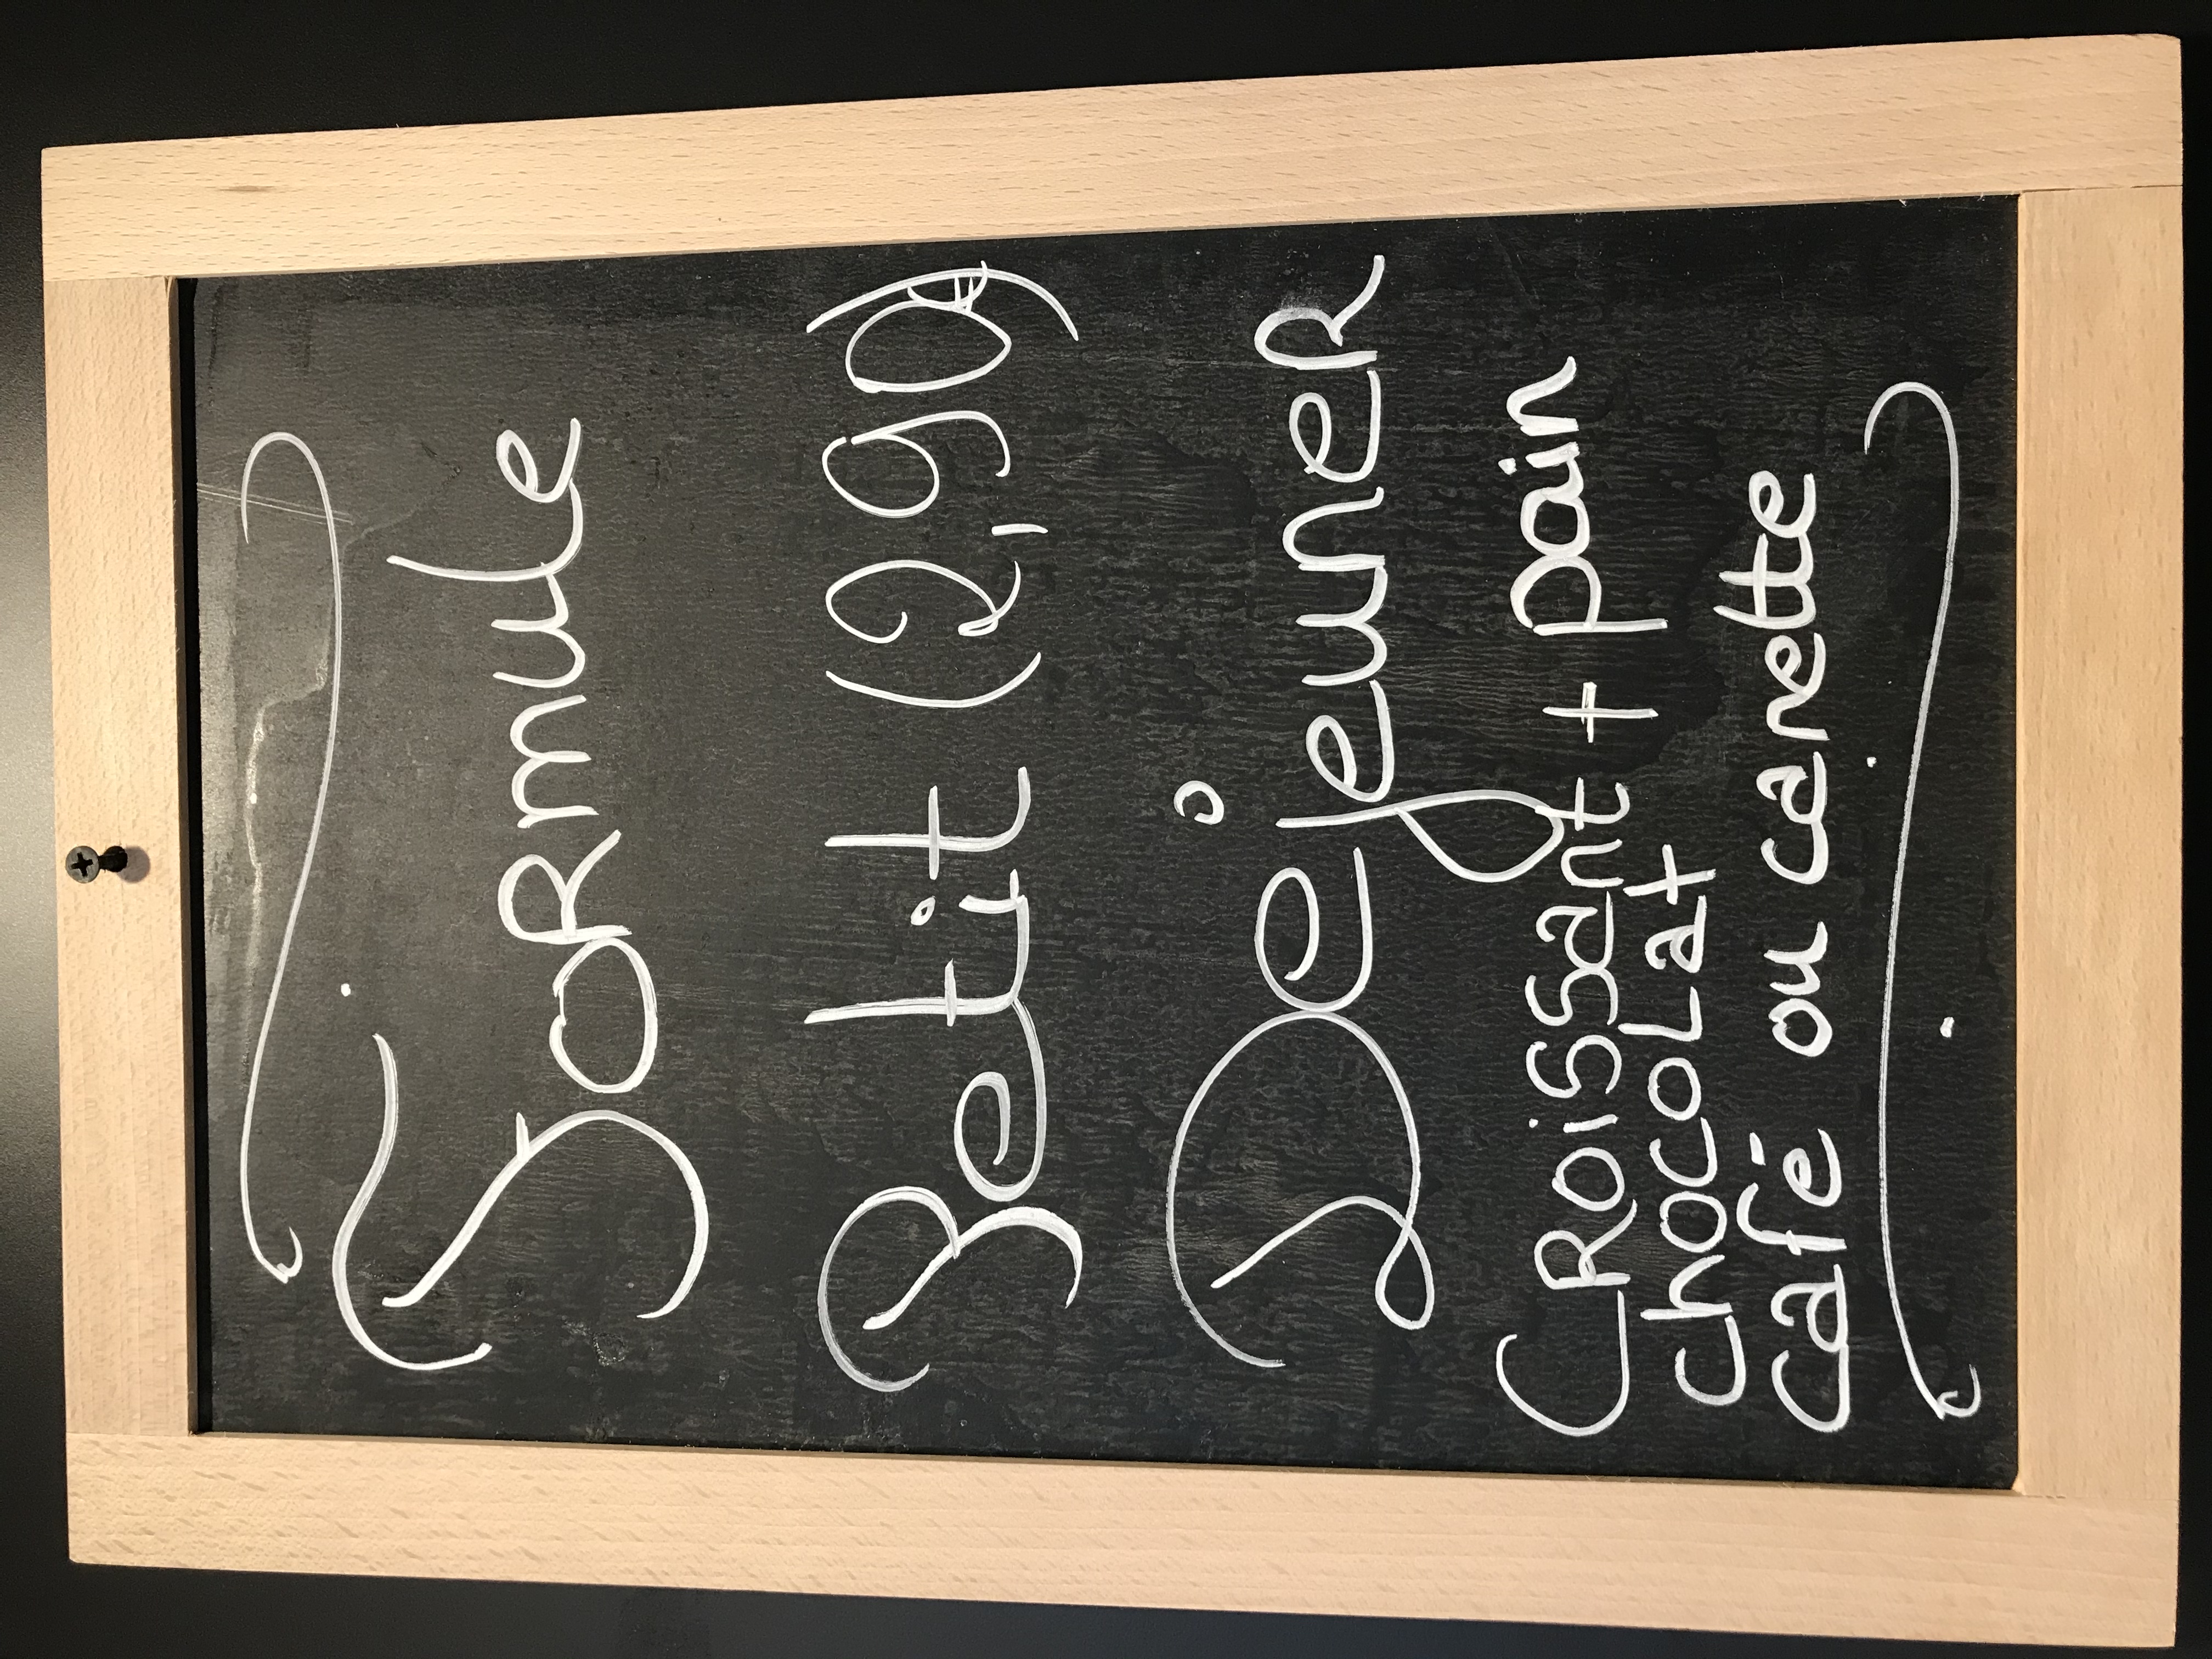 Formule
Petit (2,90€)
Dejeuner
Croissant + pain
chocolat
café ou canette